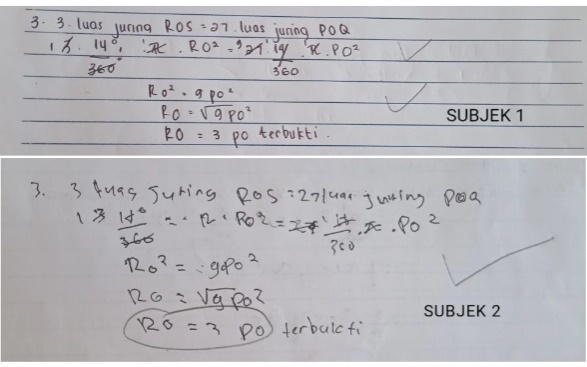 3. 3 luas juring ROS = 27 luas juring POQ
1 3 . 14°/360 . π . RO² = 27 . 14/360 . π . PO²
RO² = 9 PO²
RO = √9 PO²
RO = 3 PO terbukti.
SUBJEK 1
3. 3 luas Juring ROS = 27 luas juring POQ
1 3 14°/360 = . π . RO² = 27 . 14/360 . π . PO²
RO² = 9PO²
RO = √9 PO²
RO = 3 PO terbukti
SUBJEK 2